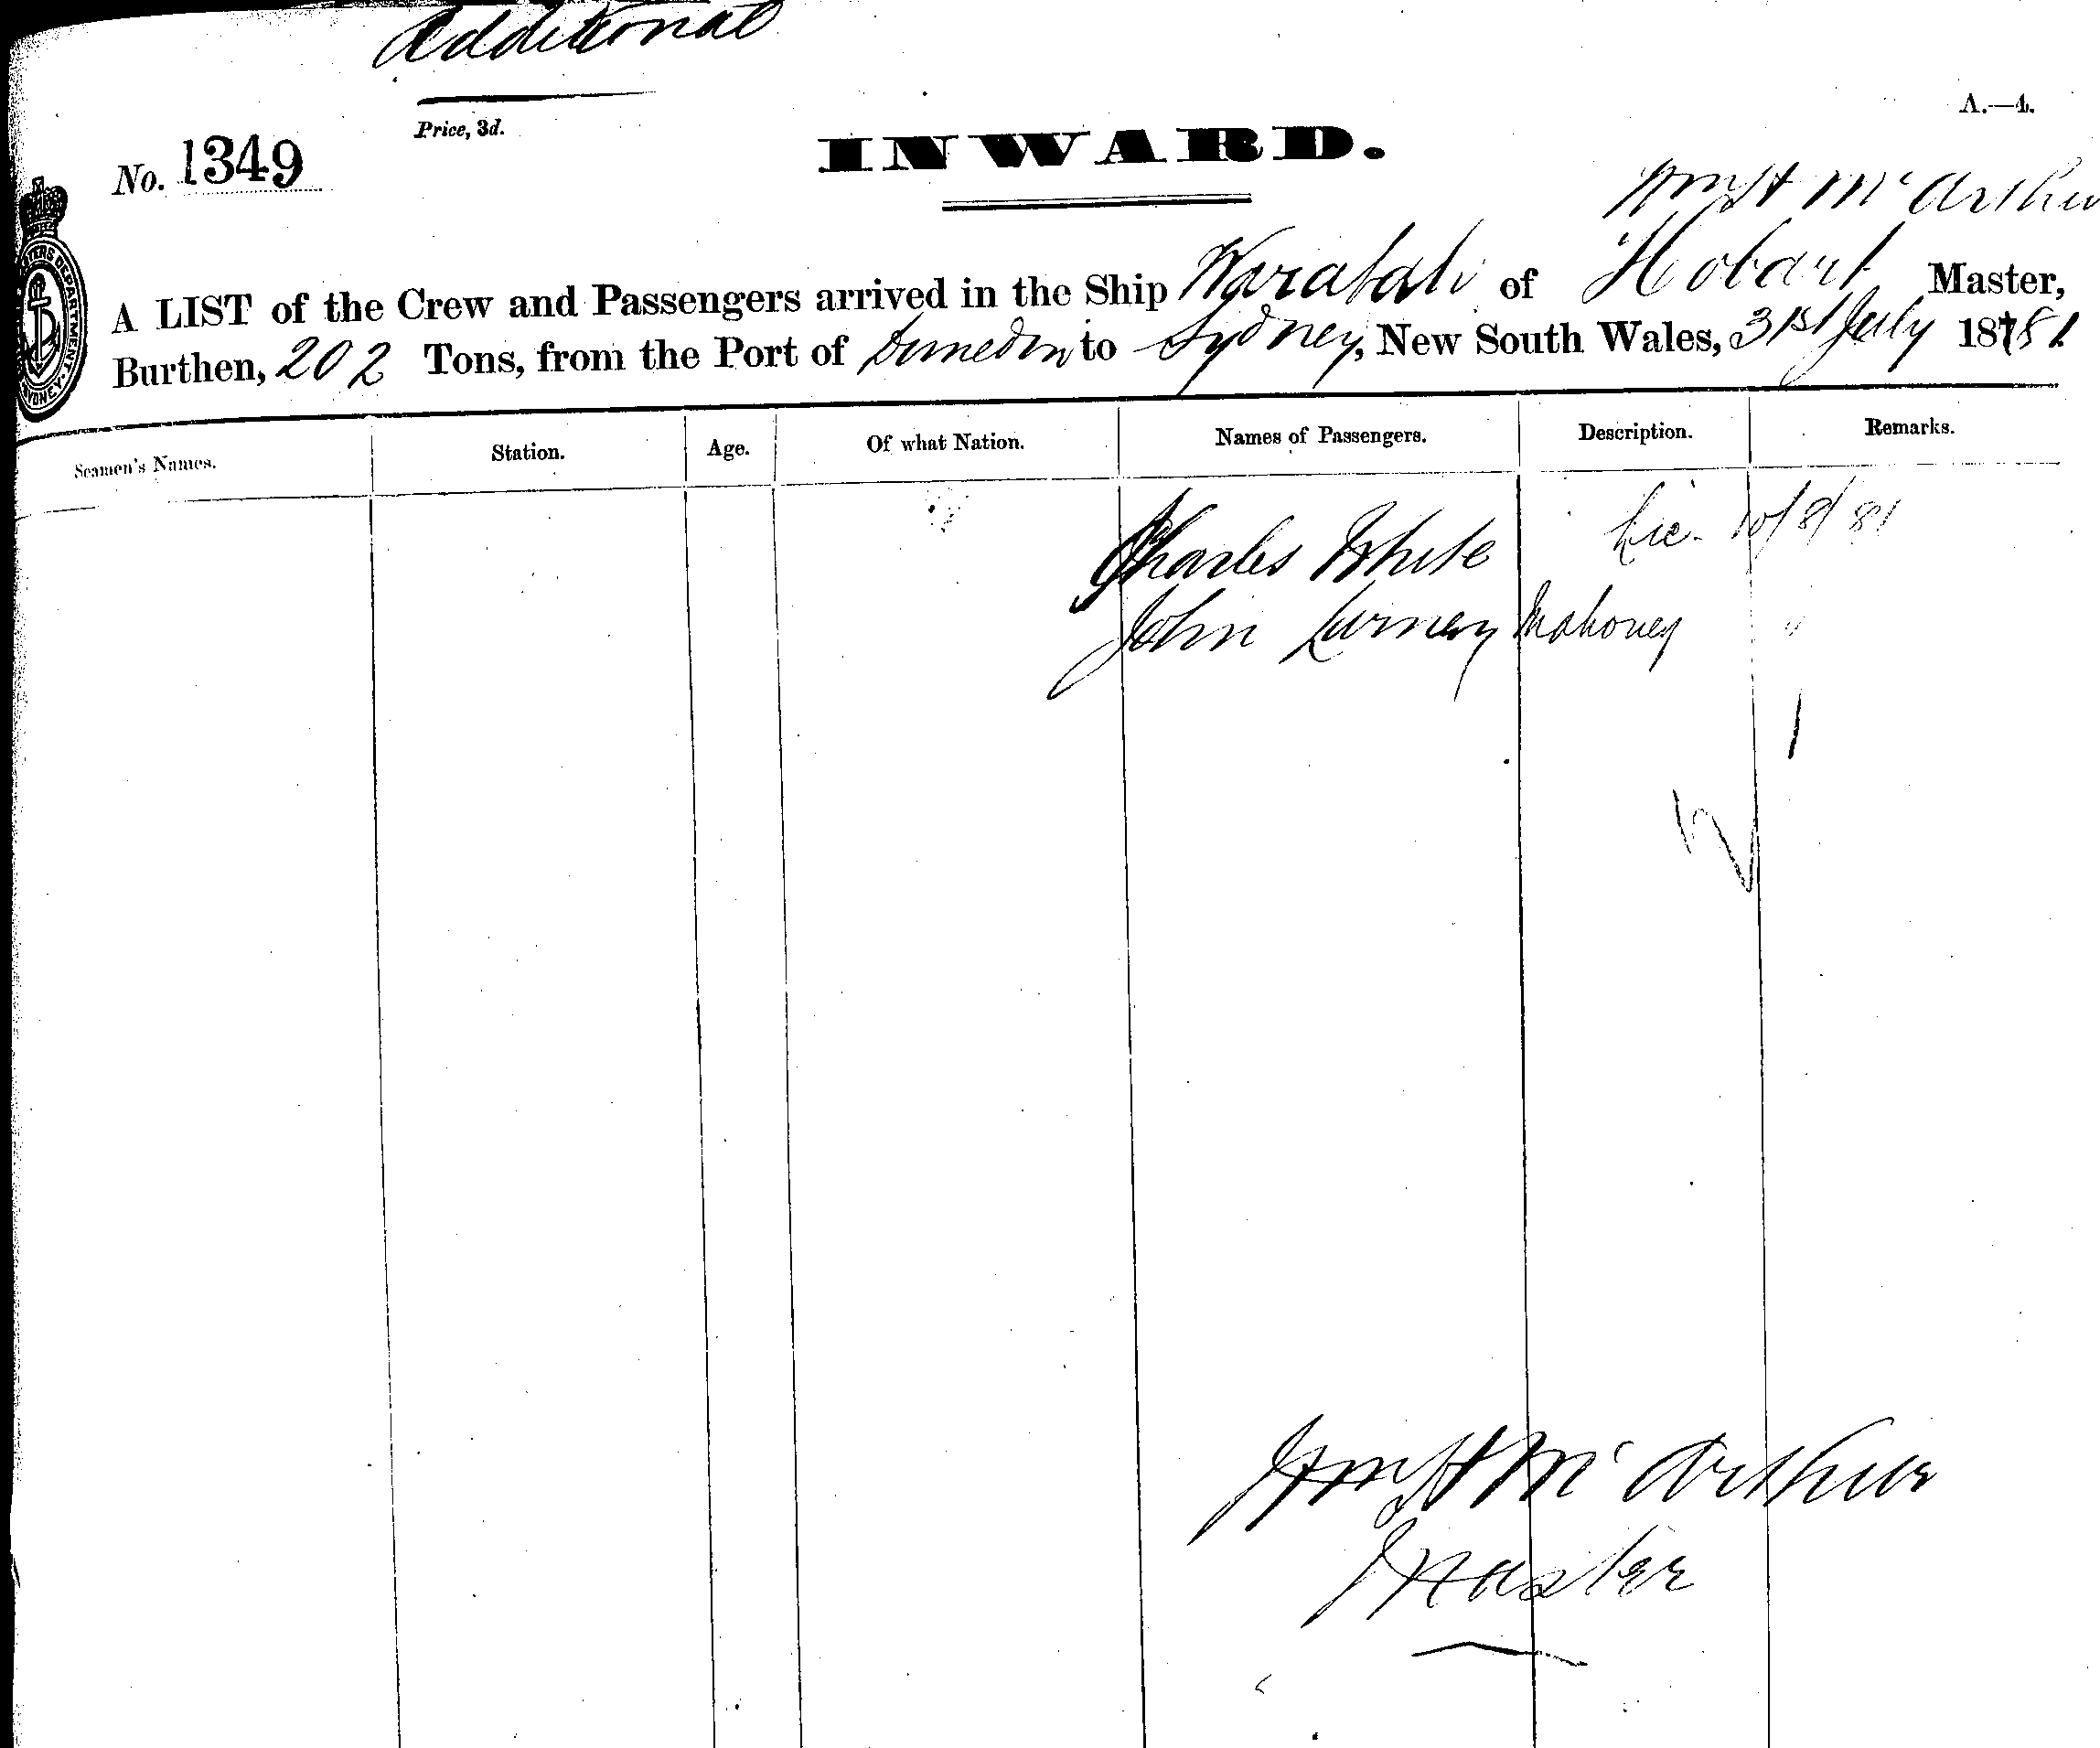 Additional
Price, 3d.
A.—4.
No. 1349
INWARD.
Wm H McArthur
A LIST of the Crew and Passengers arrived in the Ship Waratah of Hobart Master,
Burthen, 202 Tons, from the Port of Dunedin to Sydney, New South Wales, 31st July 1881
Seamen's Names. Station. Age. Of what Nation. Names of Passengers. Description. Remarks.
Charles White Lic. 10/8/81
John Mahoney "
Wm H McArthur
Master